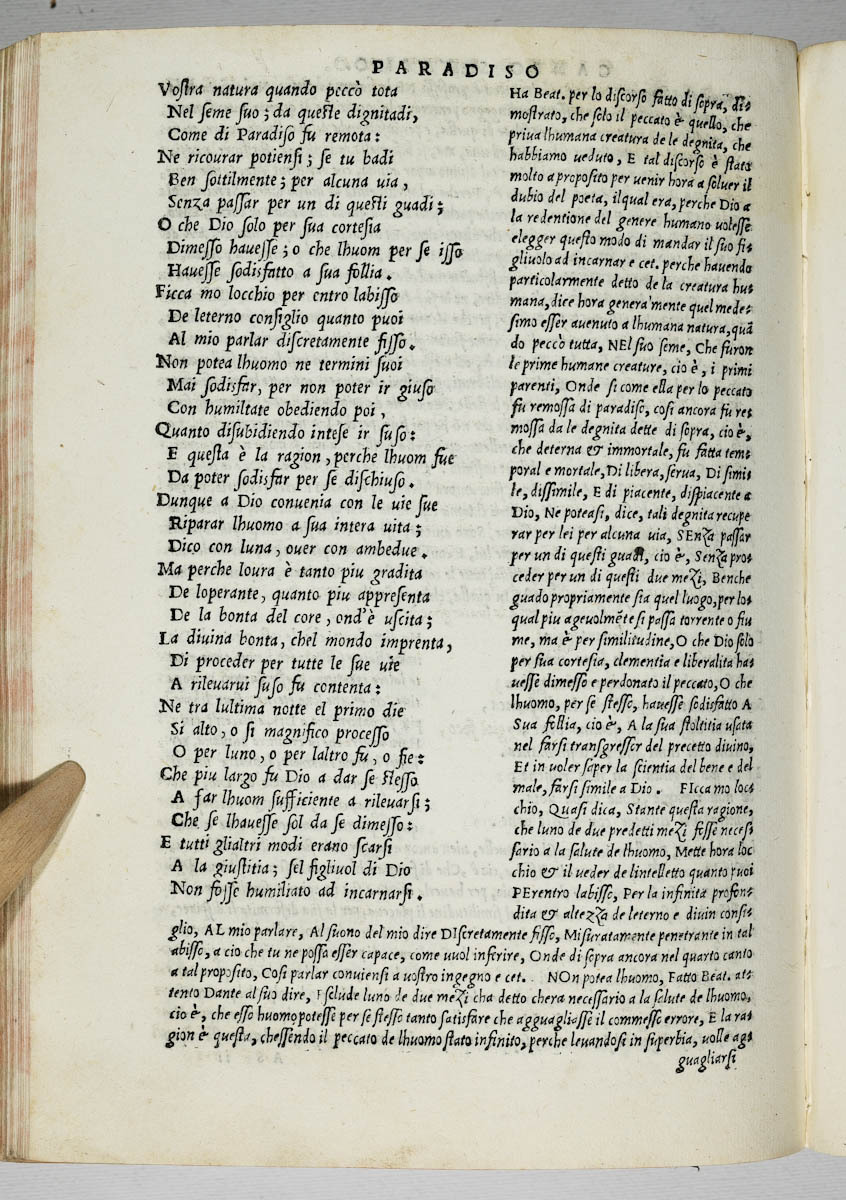 PARADISO
Vostra natura quando peccò tota
Nel seme suo; da queste dignitadi,
Come di Paradiso fu remota:
Ne ricourar potiensi; se tu badi
Ben sottilmente; per alcuna uia,
Senza passar per un di questi guadi;
O che Dio solo per sua cortesia
Dimesso hauesse; o che lhuom per se isso
Hauesse sodisfatto a sua follia.
Ficca mo locchio per entro labisso
De leterno consiglio quanto puoi
Al mio parlar discretamente fisso.
Non potea lhuomo ne termini suoi
Mai sodisfar, per non poter ir giuso
Con humiltate obediendo poi,
Quanto disubidiendo intese ir suso:
E questa è la ragion, perche lhuom fue
Da poter sodisfar per se dischiuso.
Dunque a Dio conuenia con le uie sue
Riparar lhuomo a sua intera uita;
Dico con luna, ouer con ambedue.
Ma perche loura è tanto piu gradita
De loperante, quanto piu appresenta
De la bonta del core, ond'è uscita;
La diuina bonta, chel mondo imprenta,
Di proceder per tutte le sue uie
A rileuarui suso fu contenta:
Ne tra lultima notte el primo die
Si alto, o si magnifico processo
O per luno, o per laltro fu, o fie:
Che piu largo fu Dio a dar se stesso
A far lhuom sufficiente a rileuarsi;
Che se lhauesse sol da se dimesso:
E tutti glialtri modi erano scarsi
A la giustitia; sel figliuol di Dio
Non fosse humiliato ad incarnarsi.
Ha Beat. per lo discorso fatto di sopra, di-
mostrato, che solo il peccato è quello, che
priua lhumana creatura de le degnita, che
habbiamo ueduto, E tal discorso è stato
molto a proposito per uenir hora a soluer il
dubio del poeta, ilqual era, perche Dio a
la redentione del genere humano uolesse
elegger questo modo di mandar il suo fi-
gliuolo ad incarnar e cet. perche hauendo
particolarmente detto de la creatura hu-
mana, dice hora generalmente quel mede-
simo esser auenuto a lhumana natura, quã
do peccò tutta, NEl suo seme, Che furon
le prime humane creature, cio è, i primi
parenti, Onde si come ella per lo peccato
fu remossa di paradiso, cosi ancora fu re-
mossa da le degnita dette di sopra, cio è,
che deterna & immortale, fu fatta tem-
poral e mortale, Di libera, serua, Di simi-
le, dissimile, E di piacente, dispiacente a
Dio, Ne poteasi, dice, tali degnita recupe
rar per lei per alcuna uia, SEnza passar
per un di questi guadi, cio è, Senza pro-
ceder per un di questi due mezi, Benche
guado propriamente sia quel luogo, per lo-
qual piu ageuolmẽte si passa torrente o fiu
me, ma è per similitudine, O che Dio solo
per sua cortesia, clementia e liberalita ha-
uesse dimesso e perdonato il peccato, O che
lhuomo, per se stesso, hauesse sodisfatto A
Sua follia, cio è, A la sua stoltitia usata
nel farsi transgressor del precetto diuino,
Et in uoler saper la scientia del bene e del
male, farsi simile a Dio. FIcca mo loc-
chio, Quasi dica, Stante questa ragione,
che luno de due predetti mezi fesse neces-
sario a la salute de lhuomo, Mette hora loc
chio & il ueder de lintelletto quanto puoi
PErentro labisso, Per la infinita profon-
dita & altezza de leterno e diuin consi-
glio, AL mio parlare, Al suono del mio dire DIscretamente fisso, Misuratamente penetrante in tal
abisso, a cio che tu ne possa esser capace, come uuol inferire, Onde di sopra ancora nel quarto canto
a tal proposito, Cosi parlar conuiensi a uostro ingegno e cet. NOn potea lhuomo, Fatto Beat. at-
tento Dante al suo dire, Esclude luno de due mezi cha detto chera necessario a la salute de lhuomo,
cio è, che esso huomo potesse per se stesso tanto satisfare che agguagliasse il commesso errore, E la ra-
gion è questa, chessendo il peccato de lhuomo stato infinito, perche leuandosi in superbia, uolle ag-
guagliarsi